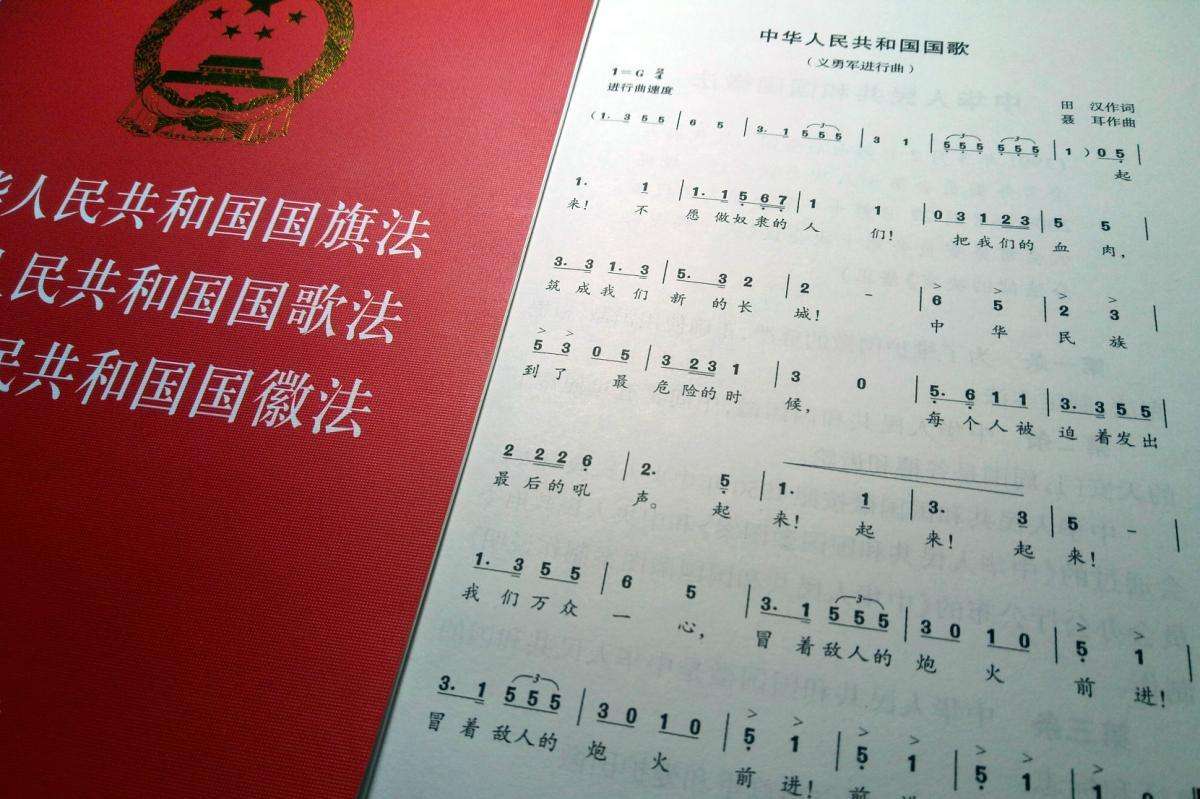 人民共和国国旗法
民共和国国歌法
共和国国徽法
中华人民共和国国歌
(义勇军进行曲)
1=G 2/4
进行曲速度
田 汉作词
聂 耳作曲
(1. 3 5 5 | 6 5 | 3. 1 5 5 5 | 3 1 | 5 5 5 5 5 5 | 1 ) 0 5 |
起
1. 1 | 1. 1 5 6 7 | 1 1 | 0 3 1 2 3 | 5 5 |
来! 不 愿 做奴 隶的 人 们! 把我们的 血 肉,
3. 3 1. 3 | 5. 3 2 | 2 - | 6 5 | 2 3 |
筑成我们 新 的长 城! 中 华 民 族
5 3 0 5 | 3 2 3 1 | 3 0 | 5. 6 1 1 | 3. 3 5 5 |
到了 最 危险的时 候, 每个人被 迫着发出
2 2 2 6 | 2. 5 | 1. 1 | 3. 3 | 5 - |
最后的吼 声。 起 来! 起 来! 起 来!
1. 3 5 5 | 6 5 | 3. 1 5 5 5 | 3 0 1 0 | 5 1 |
我们万众 一 心, 冒着敌人的 炮 火 前 进!
3. 1 5 5 5 | 3 0 1 0 | 5 1 | 5 1 | 5 1 |
冒着敌人的 炮 火 前 进! 前